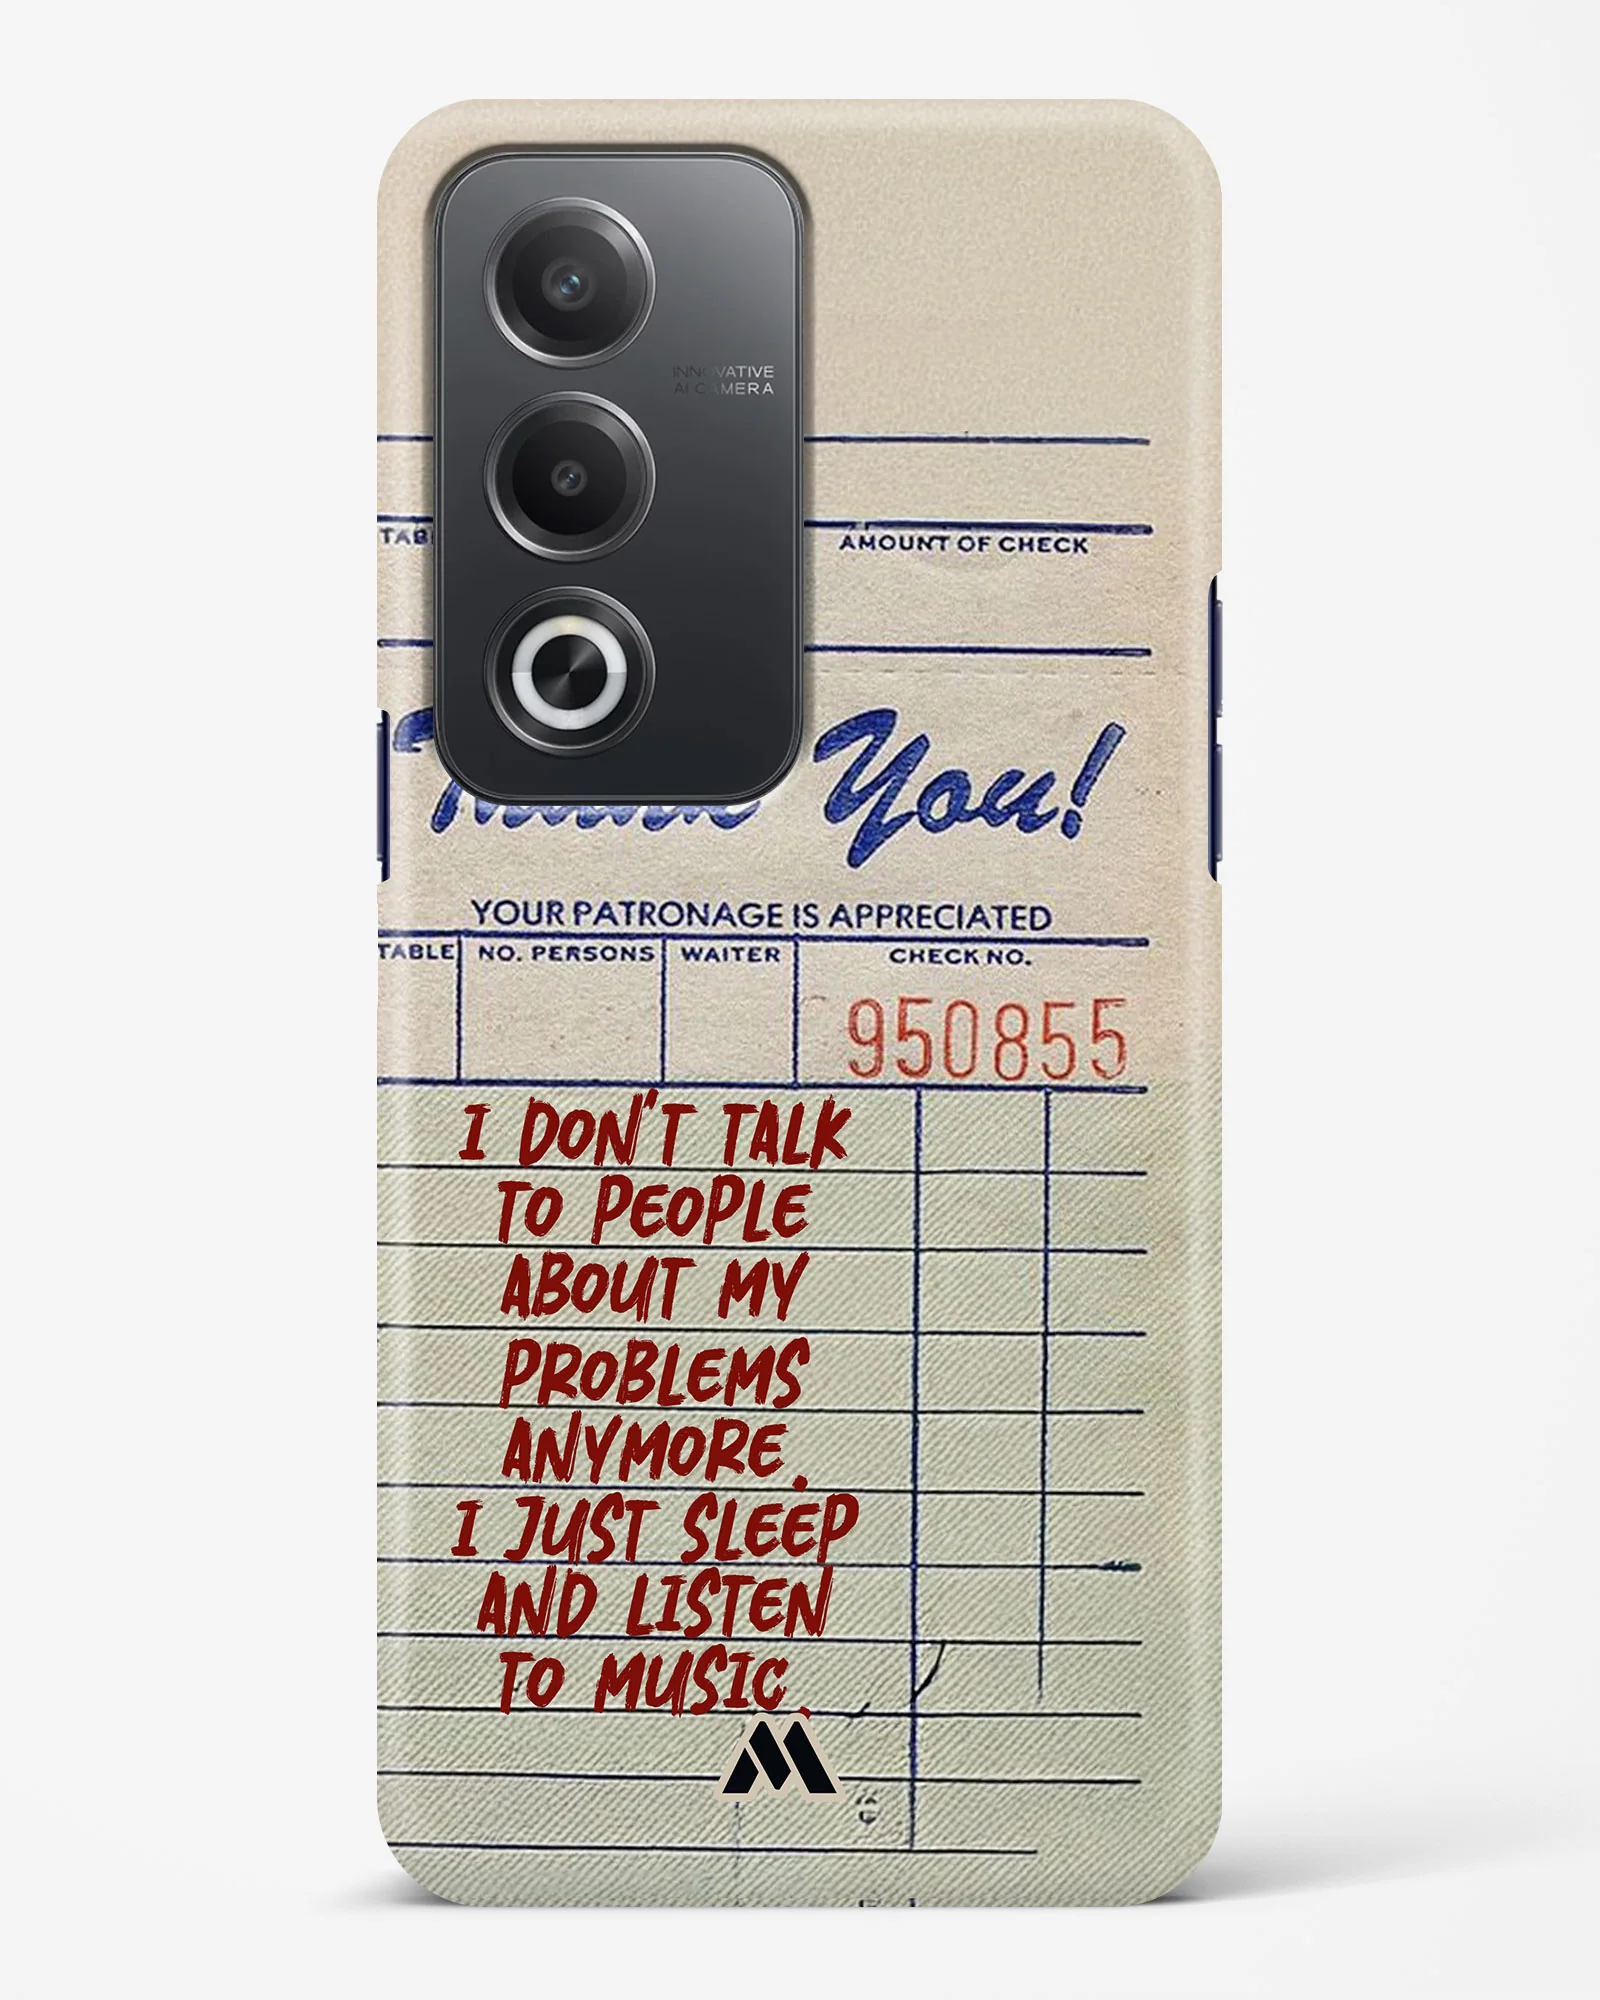 INNOVATIVE
AI CAMERA
AMOUNT OF CHECK
You!
YOUR PATRONAGE IS APPRECIATED
TABLE NO. PERSONS WAITER CHECK NO.
950855
I DON'T TALK
TO PEOPLE
ABOUT MY
PROBLEMS
ANYMORE.
I JUST SLEEP
AND LISTEN
TO MUSIC.